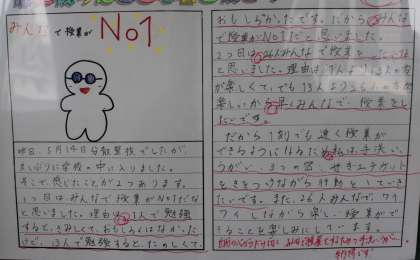 みんなで授業が
No1
昨日、5月14日分散登校でしたが、
ひさしぶりに学校の中に入りました。
そこで、感じたことが2つあります。
1つ目はみんなで授業がNo1だな
と思いました。理由は、1人で勉強
すると、さみしくて、おもしろくはなかった
けど、13人で勉強すると、たのしくて、
おもしろかったです。だから、みんな
で授業がNo1だと思いました。
2つ目は26人みんなで授業をしたいな
と思いました。理由は、1人より13人の方
が楽しくて、でも13人より
楽しいから早くみんなで、授業をし
たいです。
だから、1刻でも速く授業が
できるようになるため私は、手洗い、
うがい、3つの密、せきエチケット
をきをつけながら行動をしていき
たいです。また、26人みんなで、ワイ
ワイしながら楽しい授業がで
きることを楽しみにしています。